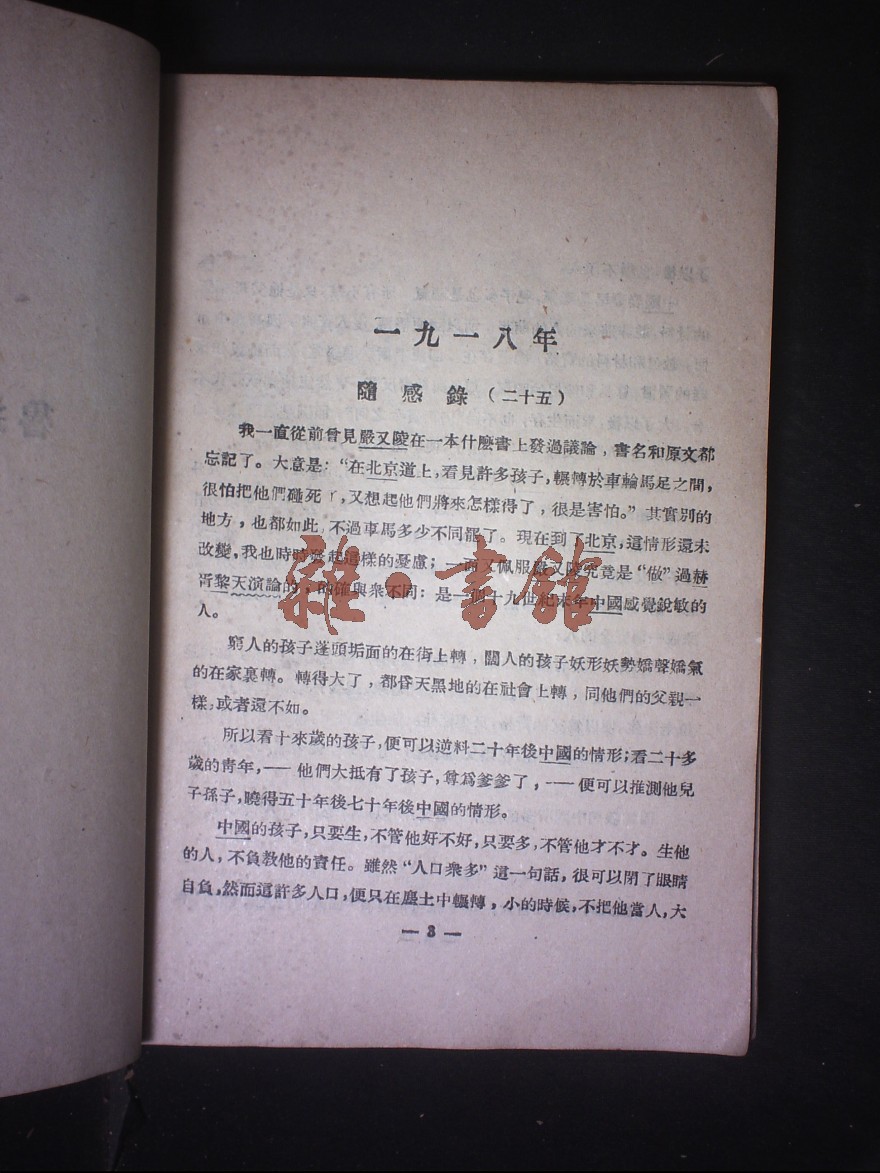 一九一八年
隨感錄（二十五）
我一直從前曾見嚴又陵在一本什麽書上發過議論，書名和原文都
忘記了。大意是：“在北京道上，看見許多孩子，輾轉於車輪馬足之間，
很怕把他們碰死了，又想起他們將來怎樣得了，很是害怕。”其實別的
地方，也都如此，不過車馬多少不同罷了。現在到了北京，這情形還未
改變，我也時時發起這樣的憂慮；一面又佩服嚴又陵究竟是“做”過赫
胥黎天演論的，的確與衆不同：是一個十九世紀末年中國感覺銳敏的
人。
窮人的孩子蓬頭垢面的在街上轉，闊人的孩子妖形妖勢嬌聲嬌氣
的在家裏轉。轉得大了，都昏天黑地的在社會上轉，同他們的父親一
樣，或者還不如。
所以看十來歲的孩子，便可以逆料二十年後中國的情形；看二十多
歲的靑年，——他們大抵有了孩子，尊爲爹爹了，——便可以推測他兒
子孫子，曉得五十年後七十年後中國的情形。
中國的孩子，只要生，不管他好不好，只要多，不管他才不才。生他
的人，不負教他的責任。雖然“人口衆多”這一句話，很可以閉了眼睛
自負，然而這許多人口，便只在塵土中輾轉，小的時候，不把他當人，大
— 3 —
雜·書館